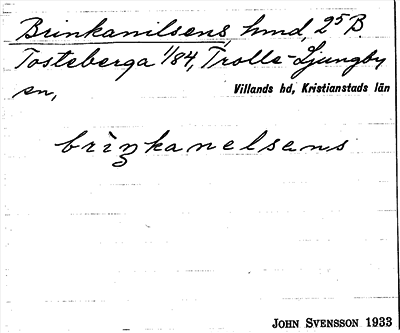 Brinkanilsens, hmd, 25 B.
Tosteberga 1/84, Trolle-Ljungby
sn,
Villands hd, Kristianstads län
briŋkanelsens
JOHN SVENSSON 1933